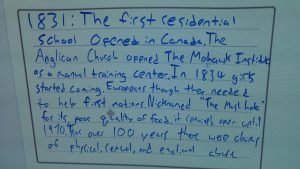 1831: The first residential
School Opened in Canada. The
Anglican Church opened The Mohawk Institute
as a manual training center. In 1834 girls
started coming. Europeans though they needed
to help first nations. Nicknamed "The Mush Hole"
for its poor quality of food, it remained open until
1970. For over 100 years there were claims
of physical, sexual, and emotional abuse